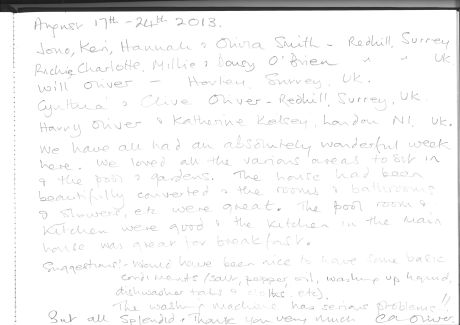 August 17th - 24th 2013.
Jono, Ken, Hannah & Olivia Smith - Redhill, Surrey
Richie, Charlotte, Millie & Daisy O'Brien " " UK
Will Oliver - Horley, Surrey, UK.
Cynthia & Clive Oliver - Redhill, Surrey, UK.
Harry Oliver & Katherine Kelsey, London N1, UK.
We have all had an absolutely wonderful week
here. We loved all the various areas to sit in
& the pool & gardens. The house had been
beautifully converted & the rooms & bathrooms
& showers, etc were great. The pool room &
kitchen were good & the kitchen in the main
house was great for breakfast.
Suggestions:- Would have been nice to have some basic
condiments (salt, pepper, oil, washing up liquid,
dishwasher tabs & etc).
The washing machine has serious problems!!
But all Splendid & Thank you very much Oliver